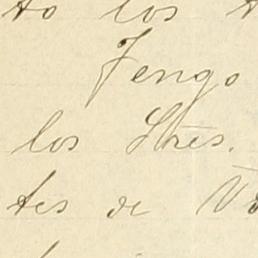 to los
Tengo
los Sres.
tes de